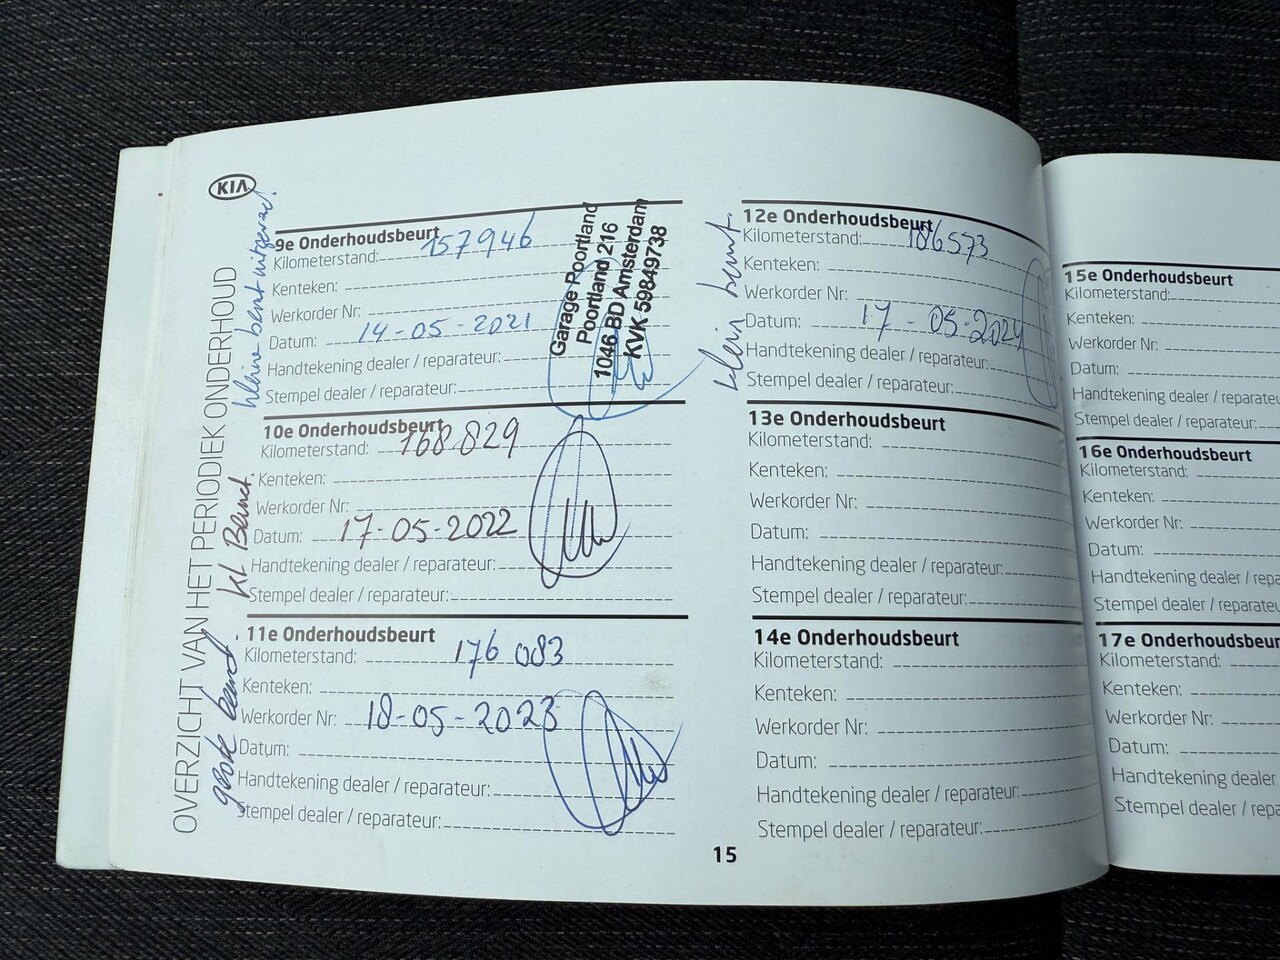 KIA
OVERZICHT VAN HET PERIODIEK ONDERHOUD
kleine beurt uitgevoerd.
9e Onderhoudsbeurt
Kilometerstand: 157946
Kenteken:
Werkorder Nr:
Datum: 14-05-2021
Handtekening dealer / reparateur:
Stempel dealer / reparateur:
Garage Poortland
Poortland 216
1046 BD Amsterdam
KVK 59849738
kl Beurt.
10e Onderhoudsbeurt
Kilometerstand: 168829
Kenteken:
Werkorder Nr:
Datum: 17-05-2022
Handtekening dealer / reparateur:
Stempel dealer / reparateur:
grote beurt.
11e Onderhoudsbeurt
Kilometerstand: 176083
Kenteken:
Werkorder Nr: 18-05-2023
Datum:
Handtekening dealer / reparateur:
Stempel dealer / reparateur:
klein beurt.
12e Onderhoudsbeurt
Kilometerstand: 186573
Kenteken:
Werkorder Nr:
Datum: 17-05-2024
Handtekening dealer / reparateur:
Stempel dealer / reparateur:
13e Onderhoudsbeurt
Kilometerstand:
Kenteken:
Werkorder Nr:
Datum:
Handtekening dealer / reparateur:
Stempel dealer / reparateur:
14e Onderhoudsbeurt
Kilometerstand:
Kenteken:
Werkorder Nr:
Datum:
Handtekening dealer / reparateur:
Stempel dealer / reparateur:
15
15e Onderhoudsbeurt
Kilometerstand:
Kenteken:
Werkorder Nr:
Datum:
Handtekening dealer / reparateu
Stempel dealer / reparateur:
16e Onderhoudsbeurt
Kilometerstand:
Kenteken:
Werkorder Nr:
Datum:
Handtekening dealer / repara
Stempel dealer / reparateu
17e Onderhoudsbeur
Kilometerstand:
Kenteken:
Werkorder Nr:
Datum:
Handtekening dealer
Stempel dealer / repara